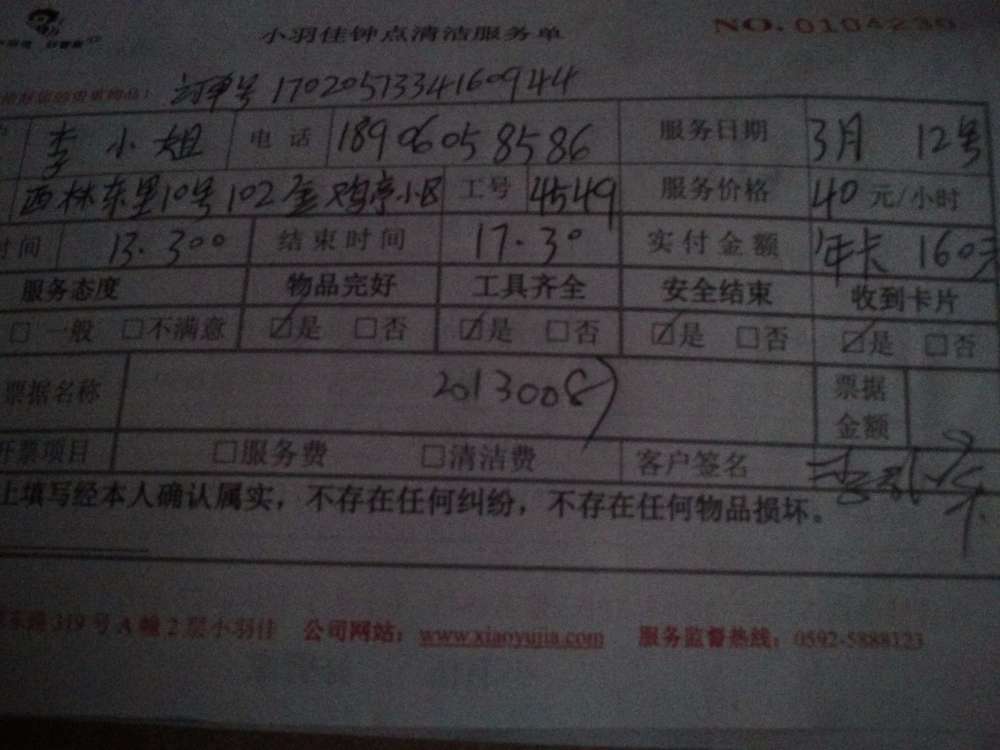 小羽佳钟点清洁服务单 NO. 0104230
订单号 1702051334160944
李小姐 电话 18906058586 服务日期 3月 12号
西林东里10号102金鸡亭小区 工号 4549 服务价格 40 元/小时
时间 13.300 结束时间 17.30 实付金额 年卡 160元
服务态度 物品完好 工具齐全 安全结束 收到卡片
□一般 □不满意 ☑是 □否 ☑是 □否 ☑是 □否 ☑是 □否
票据名称 2013008 票据金额
开票项目 □服务费 □清洁费 客户签名
上填写经本人确认属实，不存在任何纠纷，不存在任何物品损坏。
319号A幢2层小羽佳 公司网站：www.xiaoyujia.com 服务监督热线：0592-5888123